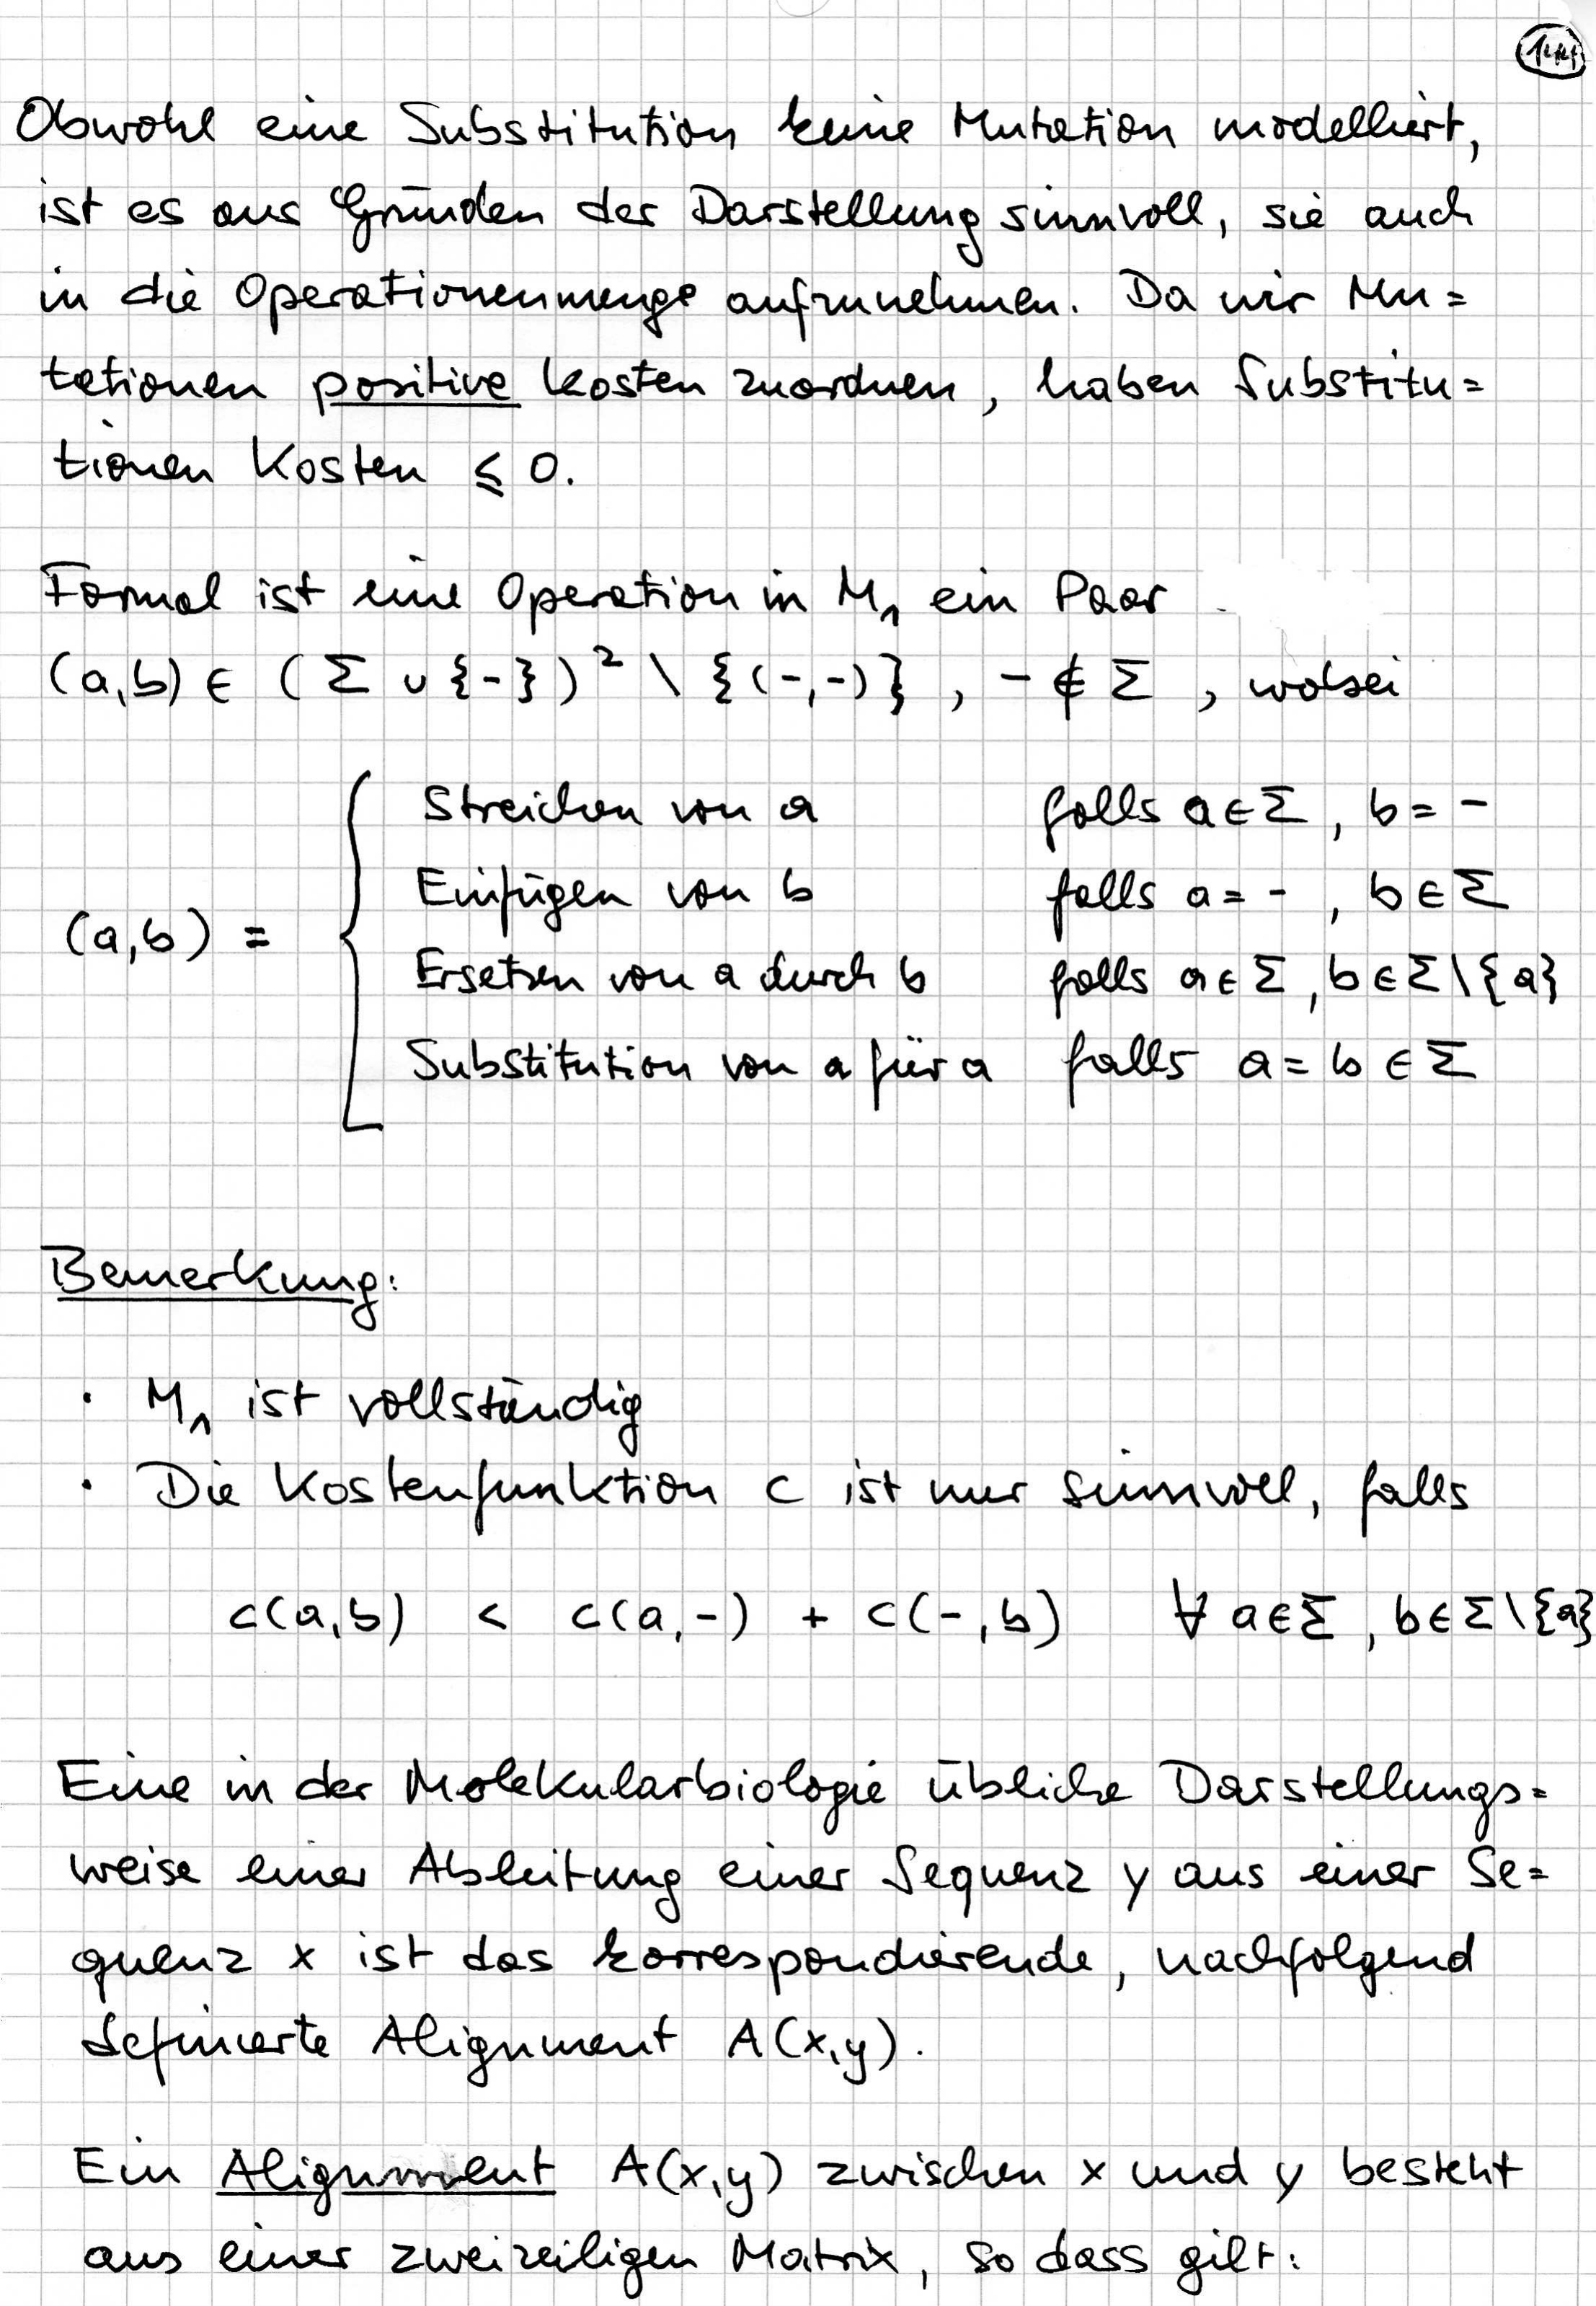 144
Obwohl eine Substitution keine Mutation modelliert,
ist es aus Gründen der Darstellung sinnvoll, sie auch
in die Operationenmenge aufzunehmen. Da wir Mu=
tationen positive Kosten zuordnen, haben Substitu=
tionen Kosten ≤ 0.
Formal ist eine Operation in M₁ ein Paar
(a,b) ∈ (Σ ∪ {-})² \ {(-,-)}, - ∉ Σ, wobei
Streichen von a falls a ∈ Σ, b = -
Einfügen von b falls a = -, b ∈ Σ
(a,b) =
Ersetzen von a durch b falls a ∈ Σ, b ∈ Σ \ {a}
Substitution von a für a falls a = b ∈ Σ
Bemerkung:
· M₁ ist vollständig
· Die Kostenfunktion c ist nur sinnvoll, falls
c(a,b) < c(a,-) + c(-,b) ∀ a ∈ Σ, b ∈ Σ \ {a}
Eine in der Molekularbiologie übliche Darstellungs=
weise einer Ableitung einer Sequenz y aus einer Se=
quenz x ist das korrespondierende, nachfolgend
definierte Alignment A(x,y).
Ein Alignment A(x,y) zwischen x und y besteht
aus einer zweizeiligen Matrix, so dass gilt: